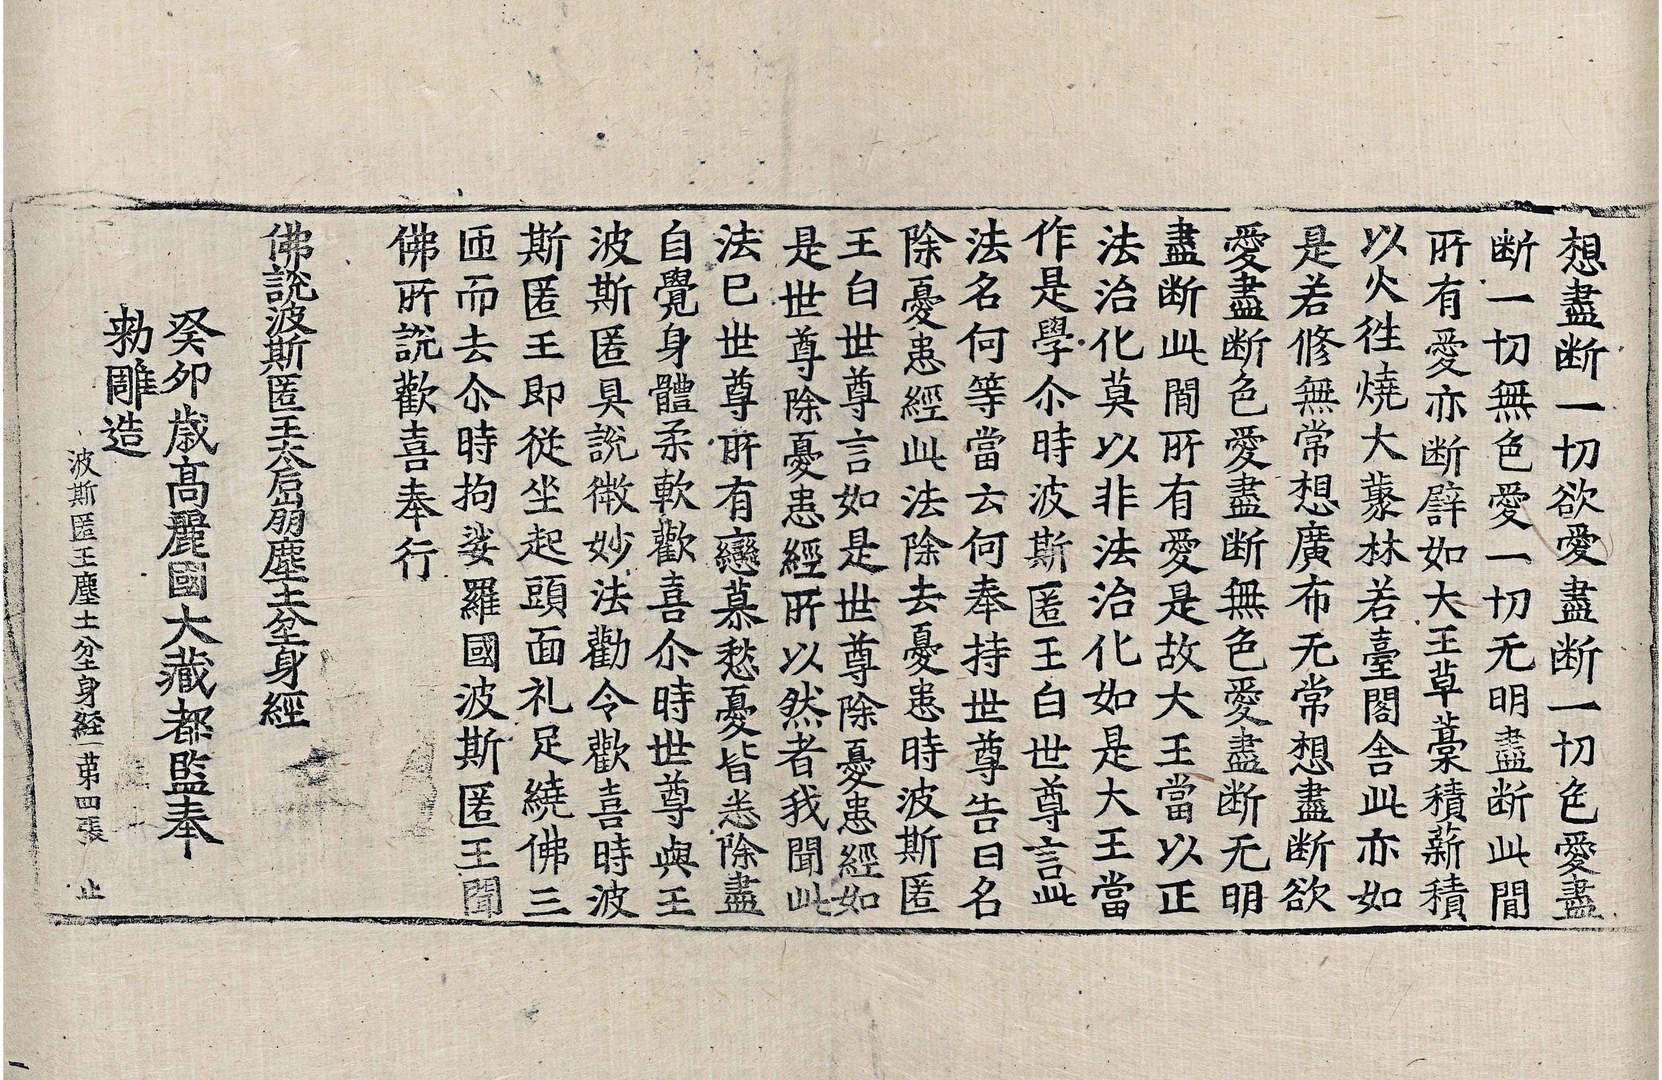 想盡断一切欲愛盡断一切色愛盡
断一切無色愛一切无明盡断此間
所有愛亦断譬如大王草藁積薪積
以火往燒大藂林若臺閣舍此亦如
是若修無常想廣布无常想盡断欲
愛盡断色愛盡断無色愛盡断无明
盡断此間所有愛是故大王當以正
法治化莫以非法治化如是大王當
作是學尒時波斯匿王白世尊言此
法名何等當云何奉持世尊告曰名
除憂患經此法除去憂患時波斯匿
王白世尊言如是世尊除憂患經如
是世尊除憂患經所以然者我聞此
法已世尊所有戀慕愁憂皆悉除盡
自覺身體柔軟歡喜尒時世尊與王
波斯匿具說微妙法勸令歡喜時波
斯匿王即從坐起頭面礼足繞佛三
匝而去尒時拘娑羅國波斯匿王聞
佛所說歡喜奉行
佛說波斯匿王太后崩塵土坌身經
癸卯歲高麗國大藏都監奉
勑雕造
波斯匿王塵土坌身経 第四張 止